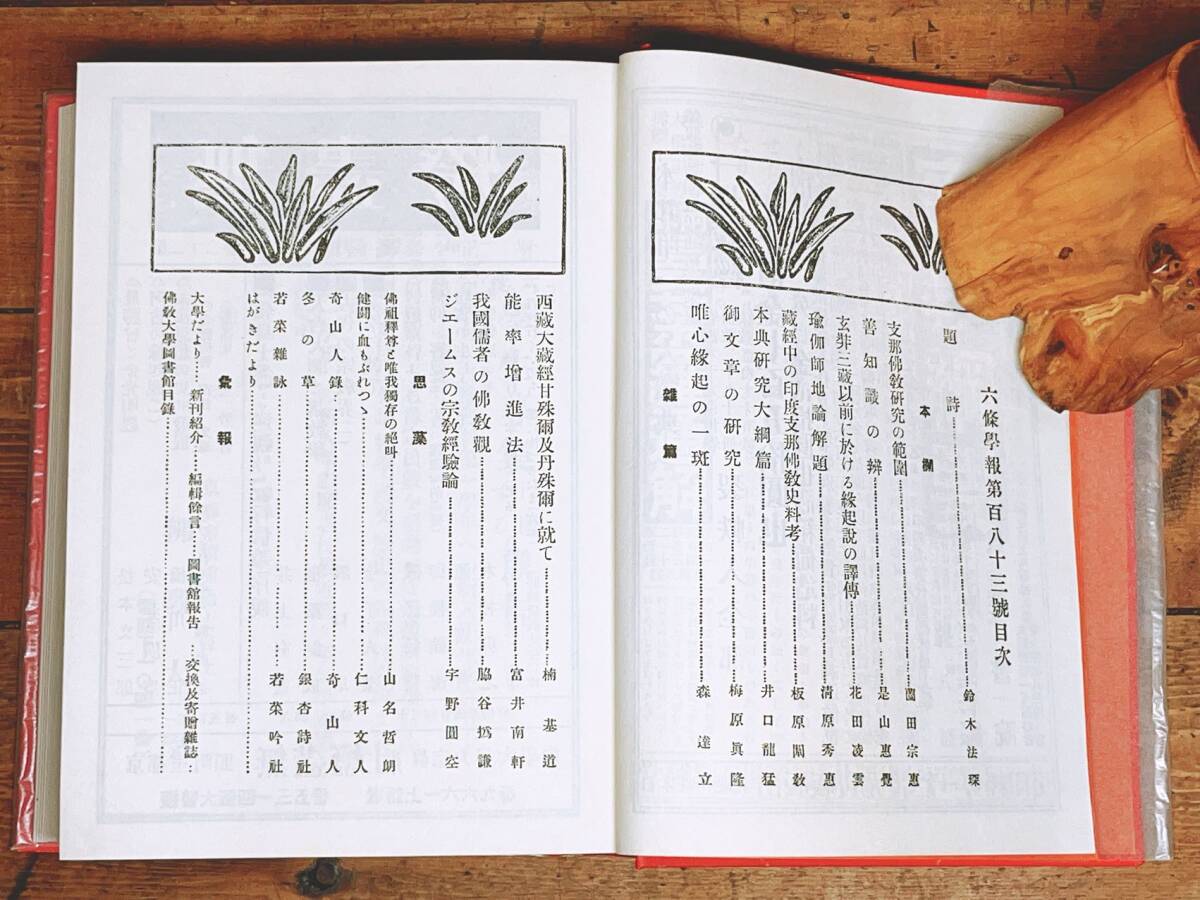 六條學報第百八十三號目次
題詩……鈴木法琛
本欄
支那佛敎硏究の範圍……薗田宗惠
善知識の辨……是山惠覺
玄弉三藏以前に於ける緣起說の譯傳……花田凌雲
瑜伽師地論解題……淸原秀惠
藏經中の印度支那佛敎史料考……板原闡敎
本典硏究大綱篇……井口龍猛
御文章の硏究……梅原眞隆
唯心緣起の一斑……森達立
雜篇
西藏大藏經甘殊爾及丹殊爾に就て……楠基道
能率增進法……富井南軒
我國儒者の佛敎觀……脇谷撝謙
ジエームスの宗敎經驗論……宇野圓空
思藻
佛祖釋尊と唯我獨存の絕叫……山名哲朗
健鬪に血もぶれつゝ……仁科文人
奇山人錄……奇山人
冬の草……銀杏詩社
若菜雜詠……若菜吟社
はがきだより……
彙報
大學だより……新刊紹介……編輯餘言……圖書館報告……交換及寄贈雜誌……
佛敎大學圖書館目錄……